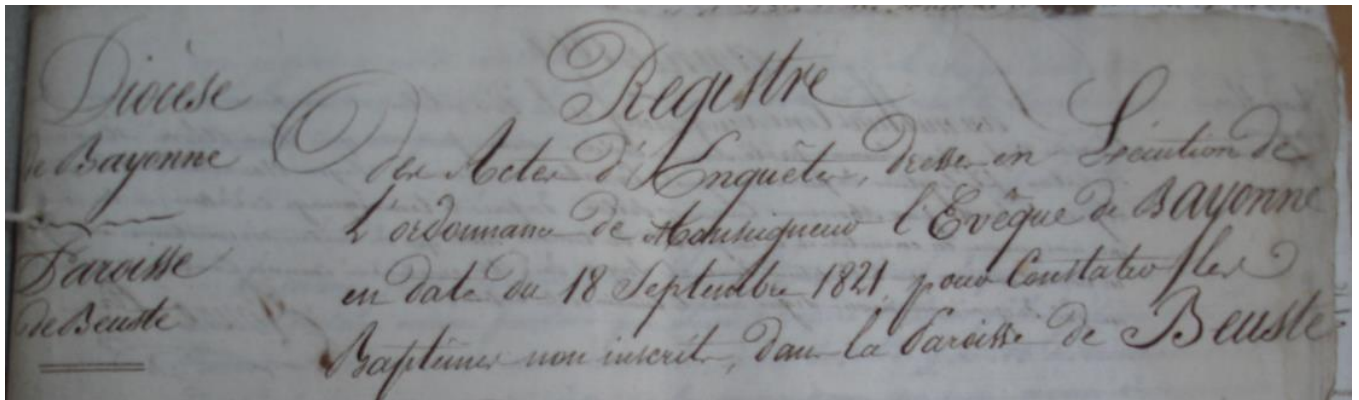 Diocèse
de Bayonne
Paroisse
de Beuste
Registre
des Actes d'Enquête, dressé en Exécution de
l'ordonnance de Monseigneur l'Evêque de BAYONNE
en date du 18 Septembre 1821, pour Constater les
Baptêmes non inscrits, dans la Paroisse de Beuste